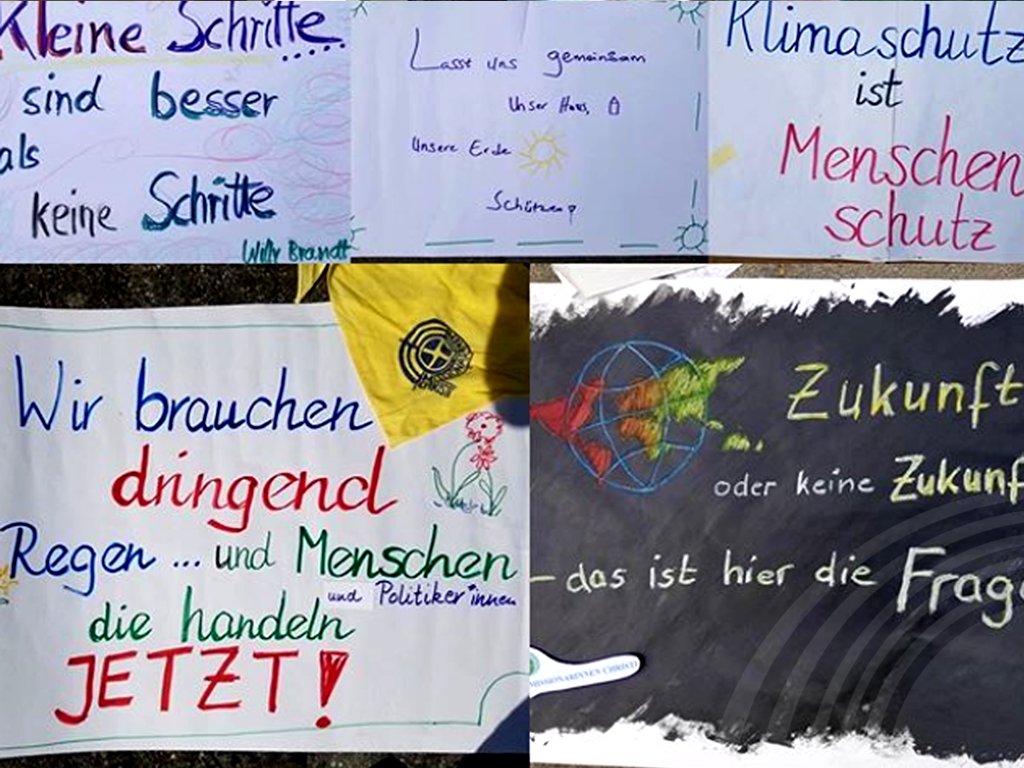 Kleine Schritte...
sind besser
als
keine Schritte
Willy Brandt
Lasst uns gemeinsam
Unser Haus,
Unsere Erde
Schützen?
Klimaschutz
ist
Menschen
schutz
Wir brauchen
dringend
Regen ... und Menschen
und Politiker*innen
die handeln
JETZT!
Zukunft
oder keine Zukunf
– das ist hier die Frage
MISSIONARINNEN CHRISTI